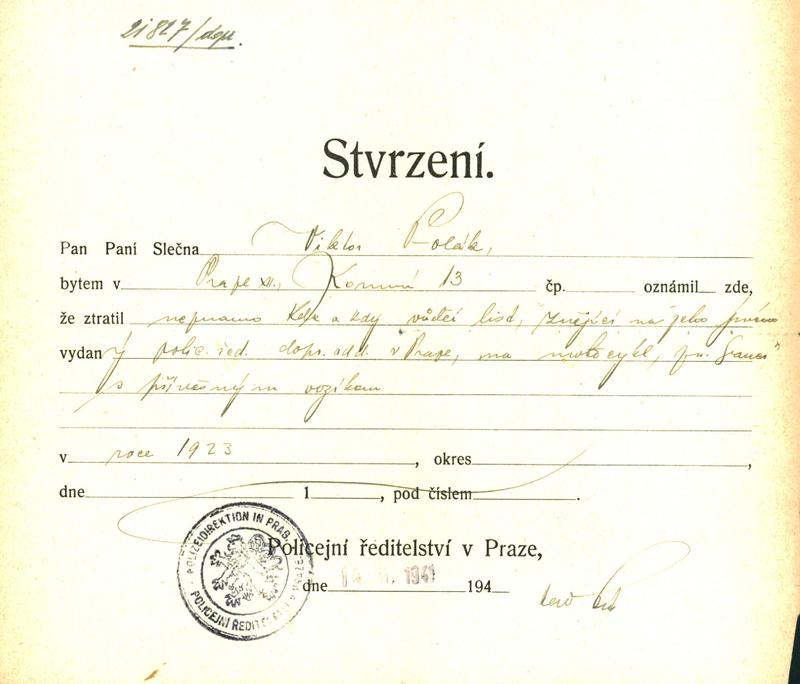 21827/dop.
Stvrzení.
Pan Paní Slečna Viktor Polák,
bytem v Praze XII., Korunní 13 čp. oznámil zde,
že ztratil neznámo kde a kdy vůdčí list, znějící na jeho jméno
vydaný polic. řed. dopr. odd. v Praze, na motocykl, zn.
s přívěsným vozíkem
v roce 1923, okres,
dne 1, pod číslem.
POLIZEIDIREKTION IN PRAG
POLICEJNÍ ŘEDITELSTVÍ
Policejní ředitelství v Praze,
dne 1941 194